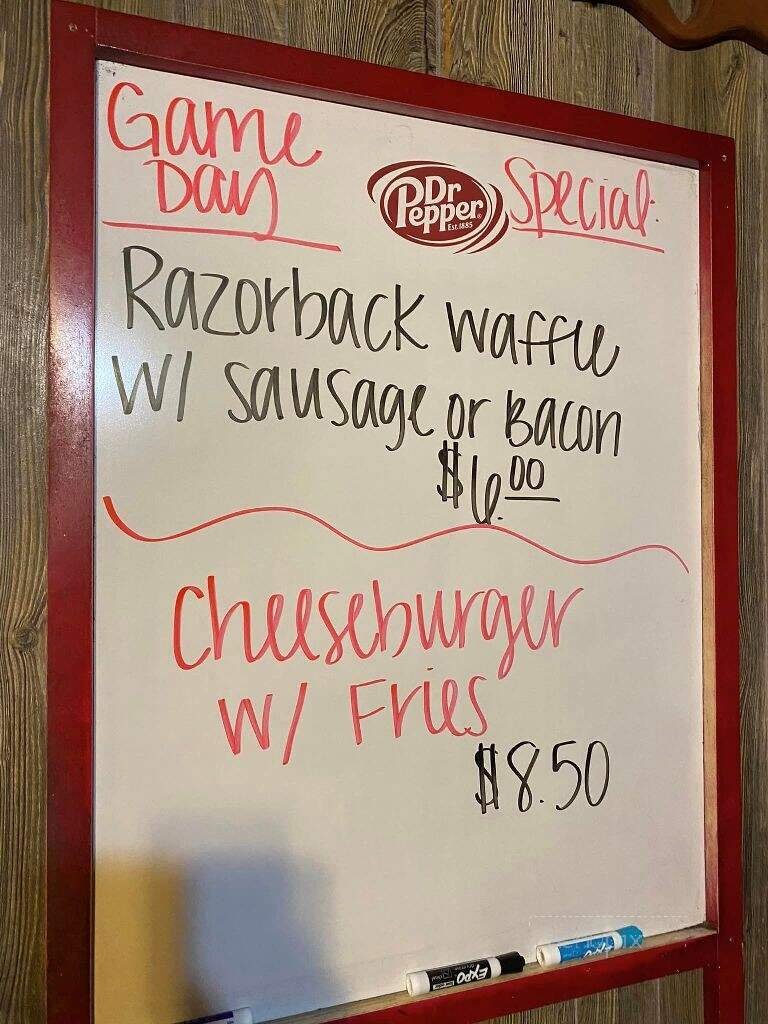 Game Day
Special:
Dr Pepper
EST. 1885
Razorback waffle
w/ sausage or Bacon
$6.00
Cheeseburger
w/ Fries
$8.50
EXPO
EXPO